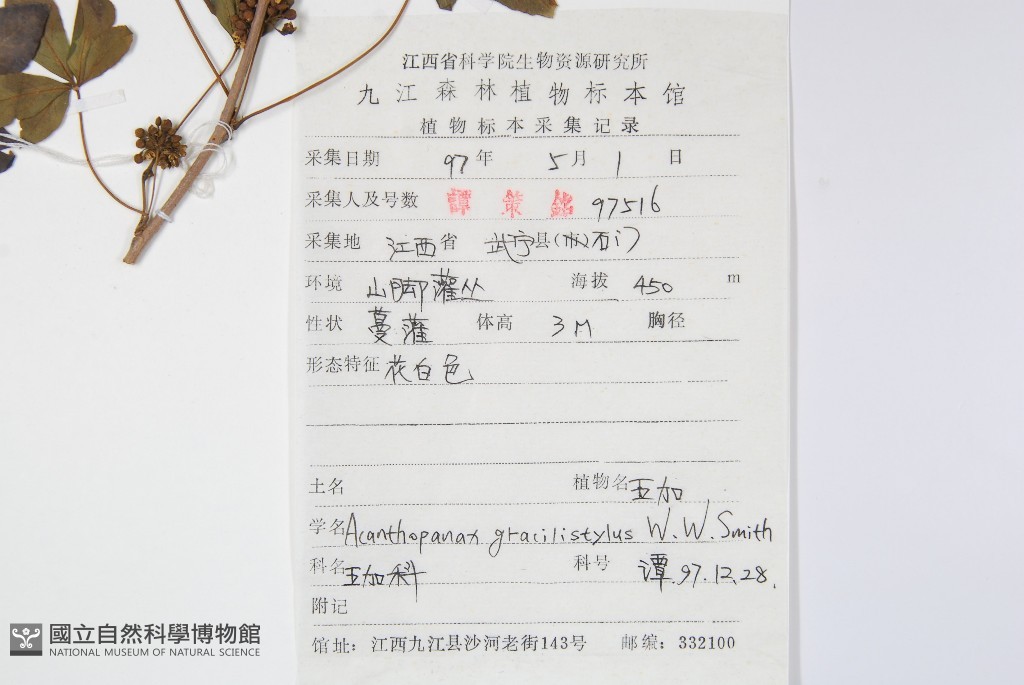 江西省科学院生物资源研究所
九江森林植物标本馆
植物标本采集记录
采集日期 97年 5月 1 日
采集人及号数 譚策銘 97516
采集地 江西省 武宁县(市)石门
环境 山脚灌丛 海拔 450 m
性状 蔓灌 体高 3M 胸径
形态特征 花白色
土名 植物名 五加
学名 Acanthopanax gracilistylus W.W.Smith
科名 五加科 科号 谭.97.12.28.
附记
馆址：江西九江县沙河老街143号 邮编：332100
國立自然科學博物館
NATIONAL MUSEUM OF NATURAL SCIENCE